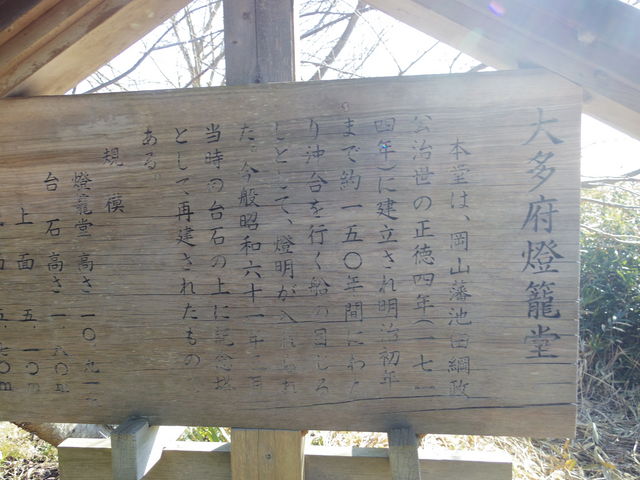 大多府燈籠堂
本堂は、岡山藩池田綱政
公治世の正徳四年(一七一
四年)に建立され明治初年
まで約一五〇年間にわた
り沖合を行く船の目じる
しとして、燈明が入れられ
た。今般昭和六十一年
当時の台石の上に記念
として再建されたもの
ある。
規模
燈籠堂 高さ 一〇
台石 高さ 一
上面 五